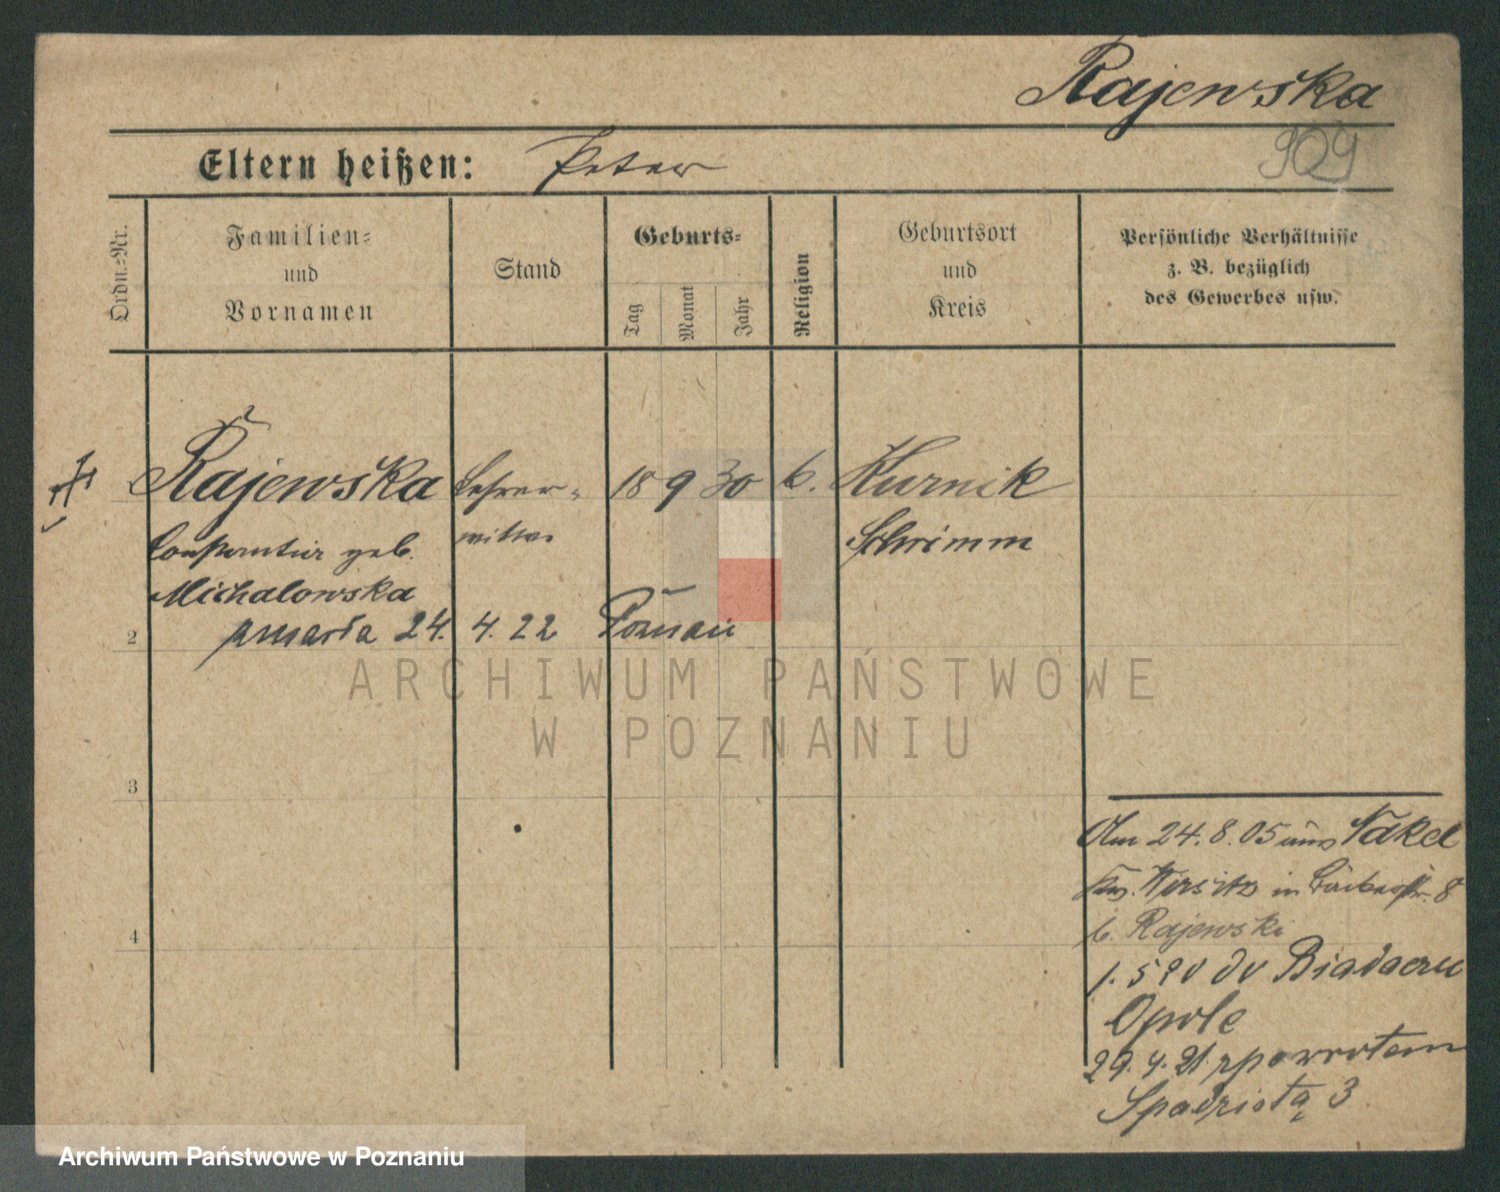 Rajewska
Eltern heißen: Peter
909
Ordn.-Nr.
Familien-
und
Vornamen
Stand
Geburts-
Tag
Monat
Jahr
Religion
Geburtsort
und
Kreis
Persönliche Verhältnisse
z. B. bezüglich
des Gewerbes usw.
Rajewska Lehrer- 18 9 30 Kurnik
geb. Schrimm
Michalowska
2 zmarła 24. 4. 22 Poznań
ARCHIWUM PAŃSTWOWE
W POZNANIU
3
Am 24. 8. 05 aus Nakel
Kr. Wirsitz in 8
b. Rajewski
4
do
Opole
29. 4. 21. zpowrotem
3
Archiwum Państwowe w Poznaniu